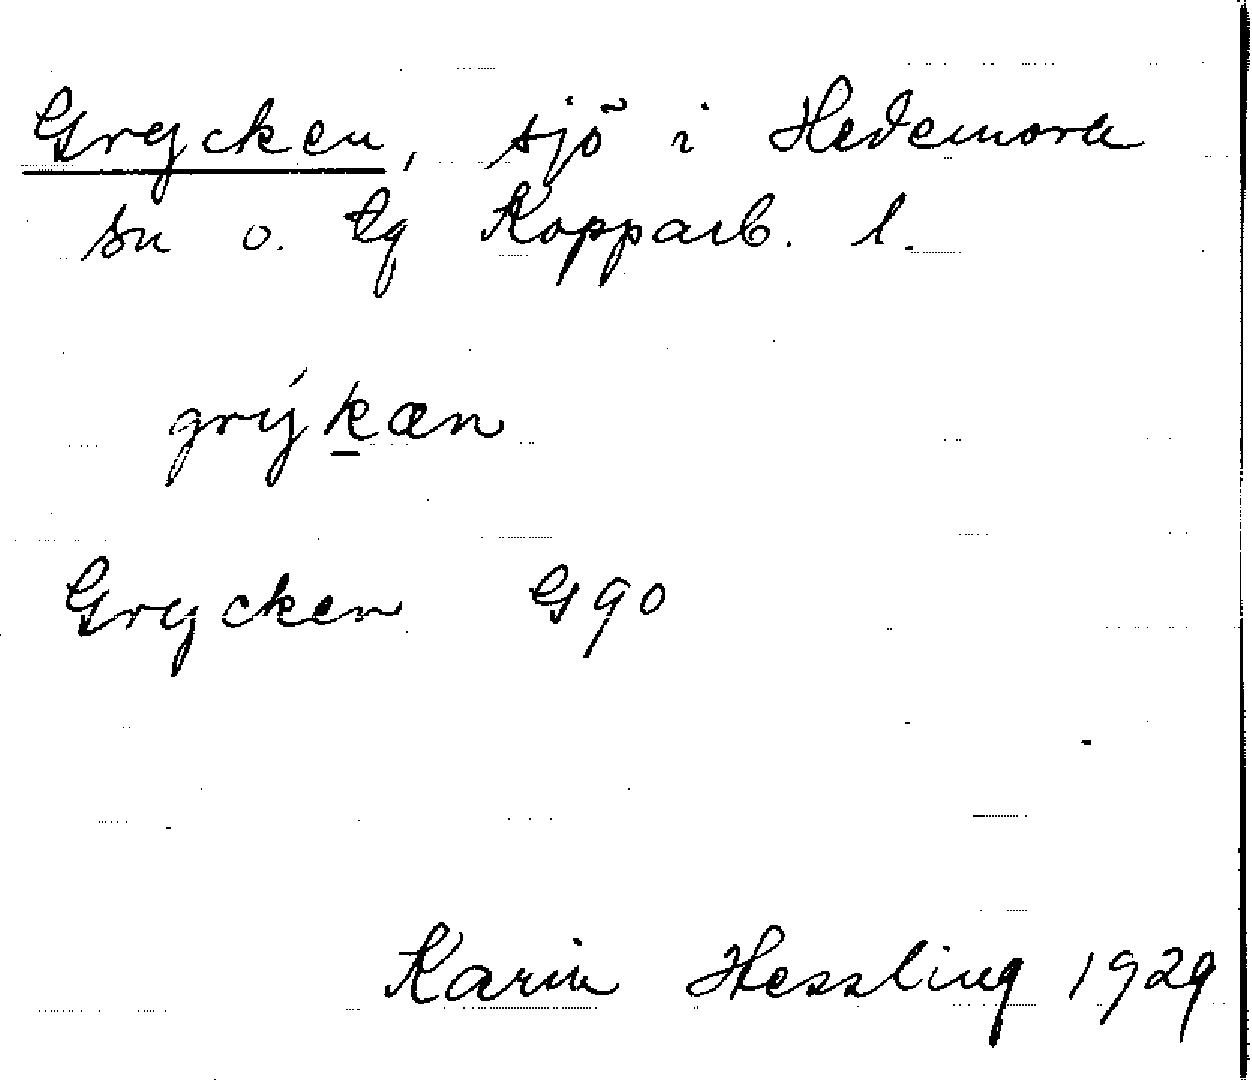 Grycken, sjö i Hedemora
sn o. tg Kopparb. l.
grýkæn
Grycken G 90
Karin Hessling 1929